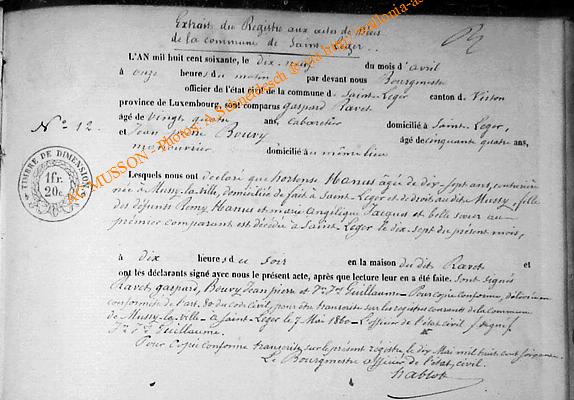 Extrait du Registre aux actes de Décès
de la commune de Saint-Léger.
L'AN mil huit cent soixante, le dix neuf du mois d'avril
à onze heures du matin par devant nous Bourgmestre
officier de l'état civil de la commune de Saint-Léger canton de Virton
province de Luxembourg, sont comparus gaspard Ravet
âgé de vingt quatre ans, cabaretier domicilié à Saint-Léger,
N° 12.
et Jean Pierre Bouvy âgé de cinquante quatre ans,
manouvrier domicilié au même lieu
TIMBRE DE DIMENSION
1 fr.
20c
Lesquels nous ont déclaré que hortense Hanus âgée de dix-sept ans, couturière
née de Mussy-la-ville, domiciliée de fait à Saint-Léger et de droit audit Mussy, fille
des défunts Remy Hanus et marie Angélique Jacques et belle soeur au
premier comparant est décédée à Saint-Léger le dix sept du présent mois,
à dix heures du soir en la maison du dit Ravet et
ont les déclarants signé avec nous le présent acte, après que lecture leur en a été faite. Sont signés
Ravet, gaspard, Bouvy Jean pierre et Guillaume - Pour copie conforme, délivrée en
conformité de l'art. 80 du code civil, pour être transcrite sur les registres courants de la commune
de Mussy-la-ville - à Saint-Léger le 7 Mai 1860 - L'officier de l'état civil (signé)
Guillaume.
Pour Copie conforme transcrite sur le présent registre, le dix Mai mil huit cent soixante
Le Bourgmestre officier de l'état, civil.
AC MUSSON - Photos: A. Schneidesch @ via http://wallonia-as